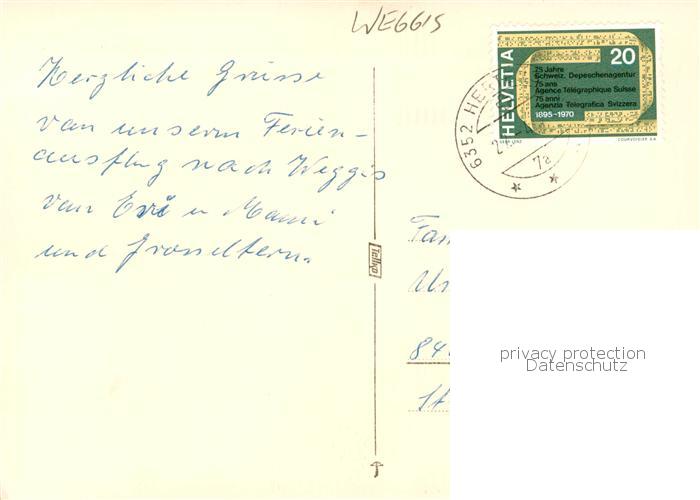 WEGGIS
Herzliche Grüsse
von unserm Ferien-
ausflug nach Weggis
von Evi u Mami
und Grosseltern.
HELVETIA
20
75 Jahre
Schweiz. Depeschenagentur
75 ans
Agence Télégraphique Suisse
75 anni
Agenzia Telegrafica Svizzera
1895-1970
COURVOISIER S.A.
6352 HER
Tellko
Fam
84
privacy protection
Datenschutz